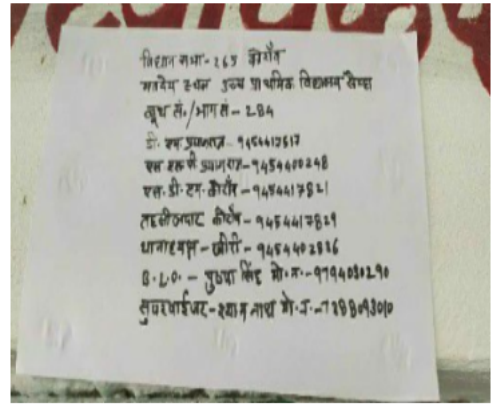 विधान सभा - 265 कोराँव
मतदेय स्थल उच्च प्राथमिक विद्यालय
बूथ सं./भाग सं - 284
डी. एम. प्रयागराज - 9454417517
एस एस पी प्रयागराज - 9454400248
एस. डी. एम. कोराँव - 9454417821
तहसीलदार कोराँव - 9454417829
थानाध्यक्ष - खीरी - 9454402826
B.L.O. - पुष्पा सिंह मो. न. -
सुपरवाईजर - श्याम नाथ मो. न. -